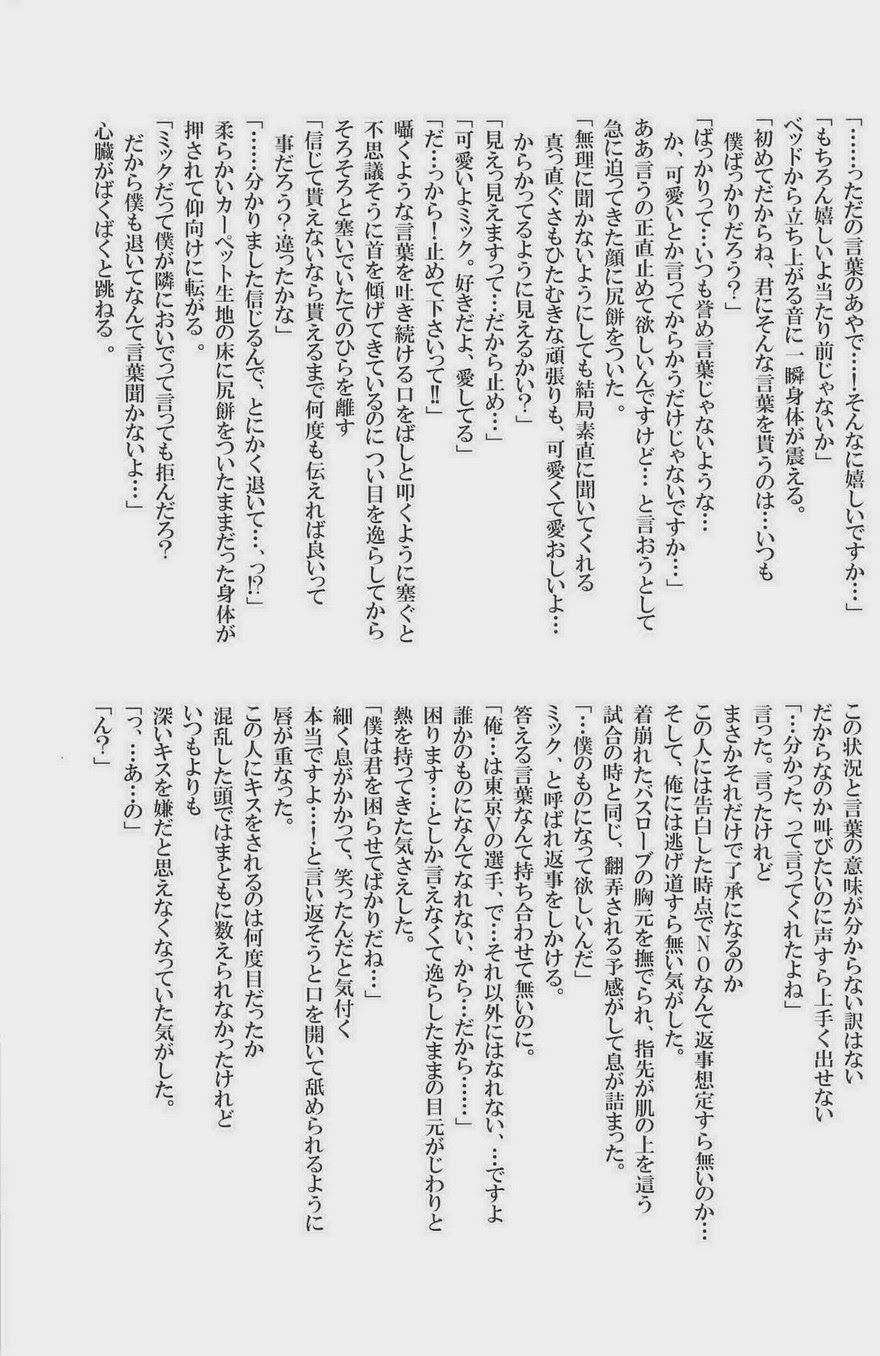 「……っただの言葉のあやで…！そんなに嬉しいですか…」
「もちろん嬉しいよ当たり前じゃないか」
ベッドから立ち上がる音に一瞬身体が震える。
「初めてだからね、君にそんな言葉を貰うのは…いつも
僕ばっかりだろう？」
「ばっかりって…いつも誉め言葉じゃないような…
か、可愛いとか言ってからかうだけじゃないですか…」
ああ言うの正直止めて欲しいんですけど…と言おうとして
急に迫ってきた顔に尻餅をついた。
「無理に聞かないようにしても結局素直に聞いてくれる
真っ直ぐさもひたむきな頑張りも、可愛くて愛おしいよ…
からかってるように見えるかい？」
「見えっ見えますって…だから止め…」
「可愛いよミック。好きだよ、愛してる」
「だ…っから！止めて下さいって!!」
囁くような言葉を吐き続ける口をばしと叩くように塞ぐと
不思議そうに首を傾げてきているのに つい目を逸らしてから
そろそろと塞いでいたてのひらを離す
「信じて貰えないなら貰えるまで何度も伝えれば良いって
事だろう？違ったかな」
「……分かりました信じるんで、とにかく退いて…、っ!?」
柔らかいカーペット生地の床に尻餅をついたままだった身体が
押されて仰向けに転がる。
「ミックだって僕が隣においでって言っても拒んだろ？
だから僕も退いてなんて言葉聞かないよ…」
心臓がばくばくと跳ねる。
この状況と言葉の意味が分からない訳はない
だからなのか叫びたいのに声すら上手く出せない
「…分かった、って言ってくれたよね」
言った。言ったけれど
まさかそれだけで了承になるのか
この人には告白した時点でＮＯなんて返事想定すら無いのか…
そして、俺には逃げ道すら無い気がした。
着崩れたバスローブの胸元を撫でられ、指先が肌の上を這う
試合の時と同じ、翻弄される予感がして息が詰まった。
「…僕のものになって欲しいんだ」
ミック、と呼ばれ返事をしかける。
答える言葉なんて持ち合わせて無いのに。
「俺…は東京Ｖの選手、で…それ以外にはなれない、…ですよ
誰かのものになんてなれない、から…だから……」
困ります…としか言えなくて逸らしたままの目元がじわりと
熱を持ってきた気さえした。
「僕は君を困らせてばかりだね…」
細く息がかかって、笑ったんだと気付く
本当ですよ…！と言い返そうと口を開いて舐められるように
唇が重なった。
この人にキスをされるのは何度目だったか
混乱した頭ではまともに数えられなかったけれど
いつもよりも
深いキスを嫌だと思えなくなっていた気がした。
「っ、…あ…の」
「ん？」